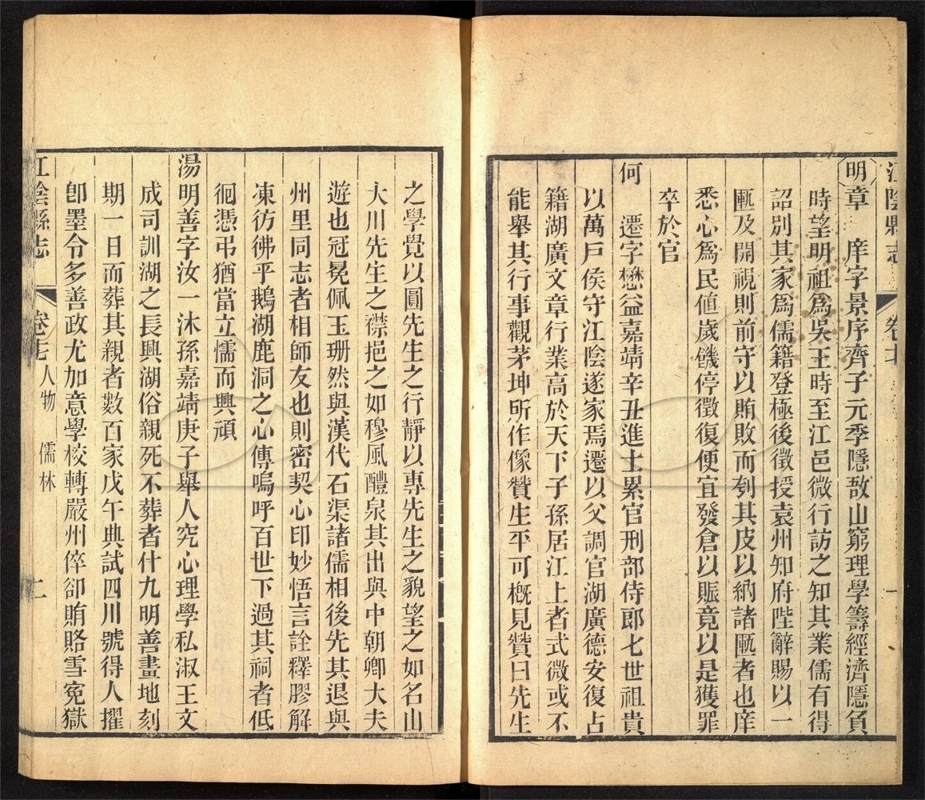 江陰縣志 卷十七 一
明章 庠字景序齊子元季隱敔山窮理學籌經濟隱負
時望明祖為吳王時至江邑微行訪之知其業儒有得
詔別其家為儒籍登極後徵授袁州知府陛辭賜以一
匭及開視則前守以賄敗而刳其皮以納諸匭者也庠
悉心為民値歲饑停徵復便宜發倉以賑竟以是獲罪
卒於官
何 遷字懋益嘉靖辛丑進士累官刑部侍郎七世祖貴
以萬戶侯守江陰遂家焉遷以父調官湖廣德安復占
籍湖廣文章行業高於天下子孫居江上者式微或不
能舉其行事觀茅坤所作像贊生平可槪見贊曰先生
之學覺以圓先生之行靜以專先生之貌望之如名山
大川先生之襟挹之如穆風醴泉其出與中朝卿大夫
遊也冠冕佩玉珊然與漢代石渠諸儒相後先其退與
州里同志者相師友也則密契心印妙悟言詮釋膠解
凍彷彿乎鵝湖鹿洞之心傳嗚呼百世下過其祠者低
徊憑弔猶當立懦而興頑
湯明善字汝一沐孫嘉靖庚子舉人究心理學私淑王文
成司訓湖之長興湖俗親死不葬者什九明善畫地刻
期一日而葬其親者數百家戊午典試四川號得人擢
卽墨令多善政尤加意學校轉嚴州倅卻賄賂雪冤獄
江陰縣志 卷十七 人物 儒林 二